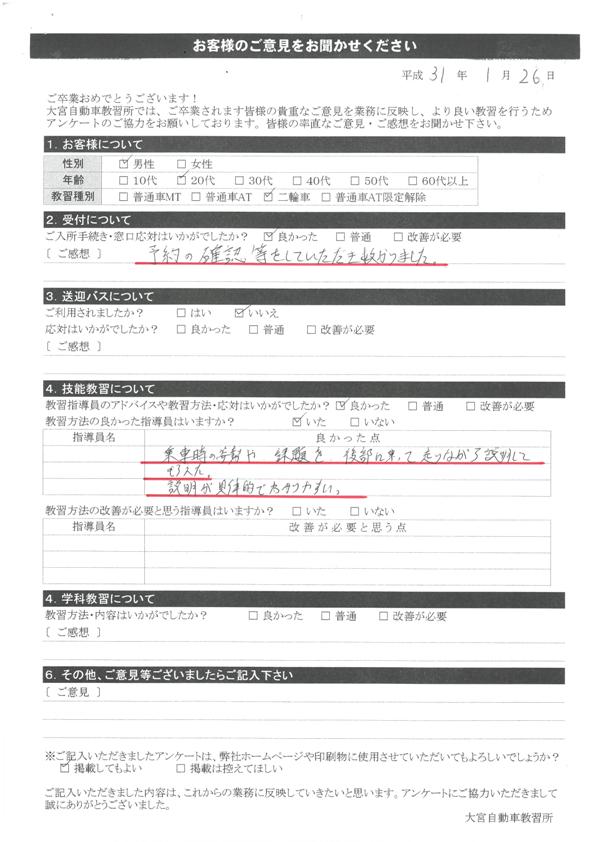 お客様のご意見をお聞かせください
平成 31 年 1 月 26 日
ご卒業おめでとうございます！
大宮自動車教習所では、ご卒業されます皆様の貴重なご意見を業務に反映し、より良い教習を行うため
アンケートのご協力をお願いしております。皆様の率直なご意見・ご感想をお聞かせ下さい。
1. お客様について
性別 ☑男性 □女性
年齢 □10代 ☑20代 □30代 □40代 □50代 □60代以上
教習種別 □普通車MT □普通車AT ☑二輪車 □普通車AT限定解除
2. 受付について
ご入所手続き・窓口応対はいかがでしたか？ ☑良かった □普通 □改善が必要
［ ご感想 ］ 予約の確認等をしていただき助かりました。
3. 送迎バスについて
ご利用されましたか？ □はい ☑いいえ
応対はいかがでしたか？ □良かった □普通 □改善が必要
［ ご感想 ］
4. 技能教習について
教習指導員のアドバイスや教習方法・応対はいかがでしたか？ ☑良かった □普通 □改善が必要
教習方法の良かった指導員はいますか？ ☑いた □いない
指導員名 良かった点
乗車時の 課題を 後部に乗って走りながら説明して
もらえた。
説明が具体的でわかりやすい。
教習方法の改善が必要と思う指導員はいますか？ □いた □いない
指導員名 改善が必要と思う点
4. 学科教習について
教習方法・内容はいかがでしたか？ □良かった □普通 □改善が必要
［ ご感想 ］
6. その他、ご意見等ございましたらご記入下さい
［ ご意見 ］
※ご記入いただきましたアンケートは、弊社ホームページや印刷物に使用させていただいてもよろしいでしょうか？
☑掲載してもよい □掲載は控えてほしい
ご記入いただきました内容は、これからの業務に反映していきたいと思います。アンケートにご協力いただきまして
誠にありがとうございました。
大宮自動車教習所